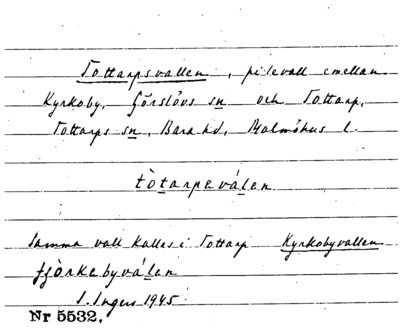 Tottarpsvallen, pilevall emellan
Kyrkoby, Görslövs sn och Tottarp,
Tottarps sn, Bara hd, Malmöhus l.
tòtarpsválen
Samma vall kallas i Tottarp Kyrkobyvallen
tjòrkebyválen
I. Ingers 1945
Nr 5532.